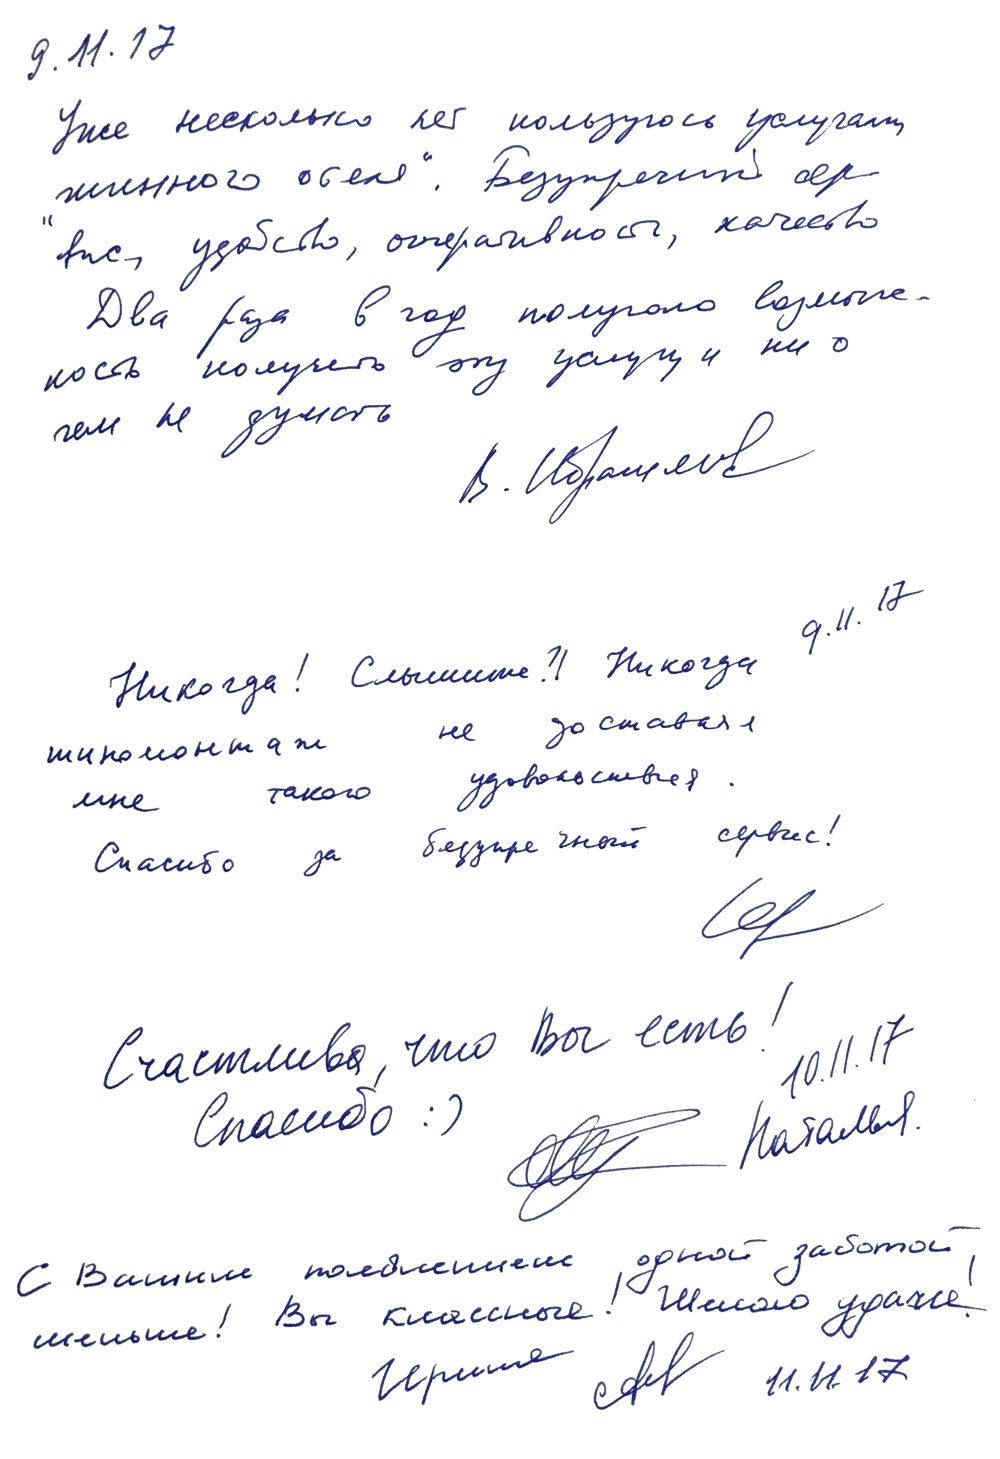 9.11.17
Уже несколько лет пользуюсь услугами
"шинного отеля". Безупречный сер-
вис, удобство, оперативность, качество
Два раза в год получаю возмож-
ность получить эту услугу и ни о
чем не думать
В.
9.11.17
Никогда! Слышите?! Никогда
шиномонтаж не доставлял
мне такого удовольствия.
Спасибо за безупречный сервис!
Счастлива, что Вы есть!
10.11.17
Спасибо :)
Наталья.
С Вашим появлением одной заботой
меньше! Вы классные! Желаю удачи!
Ирина
11.11.17